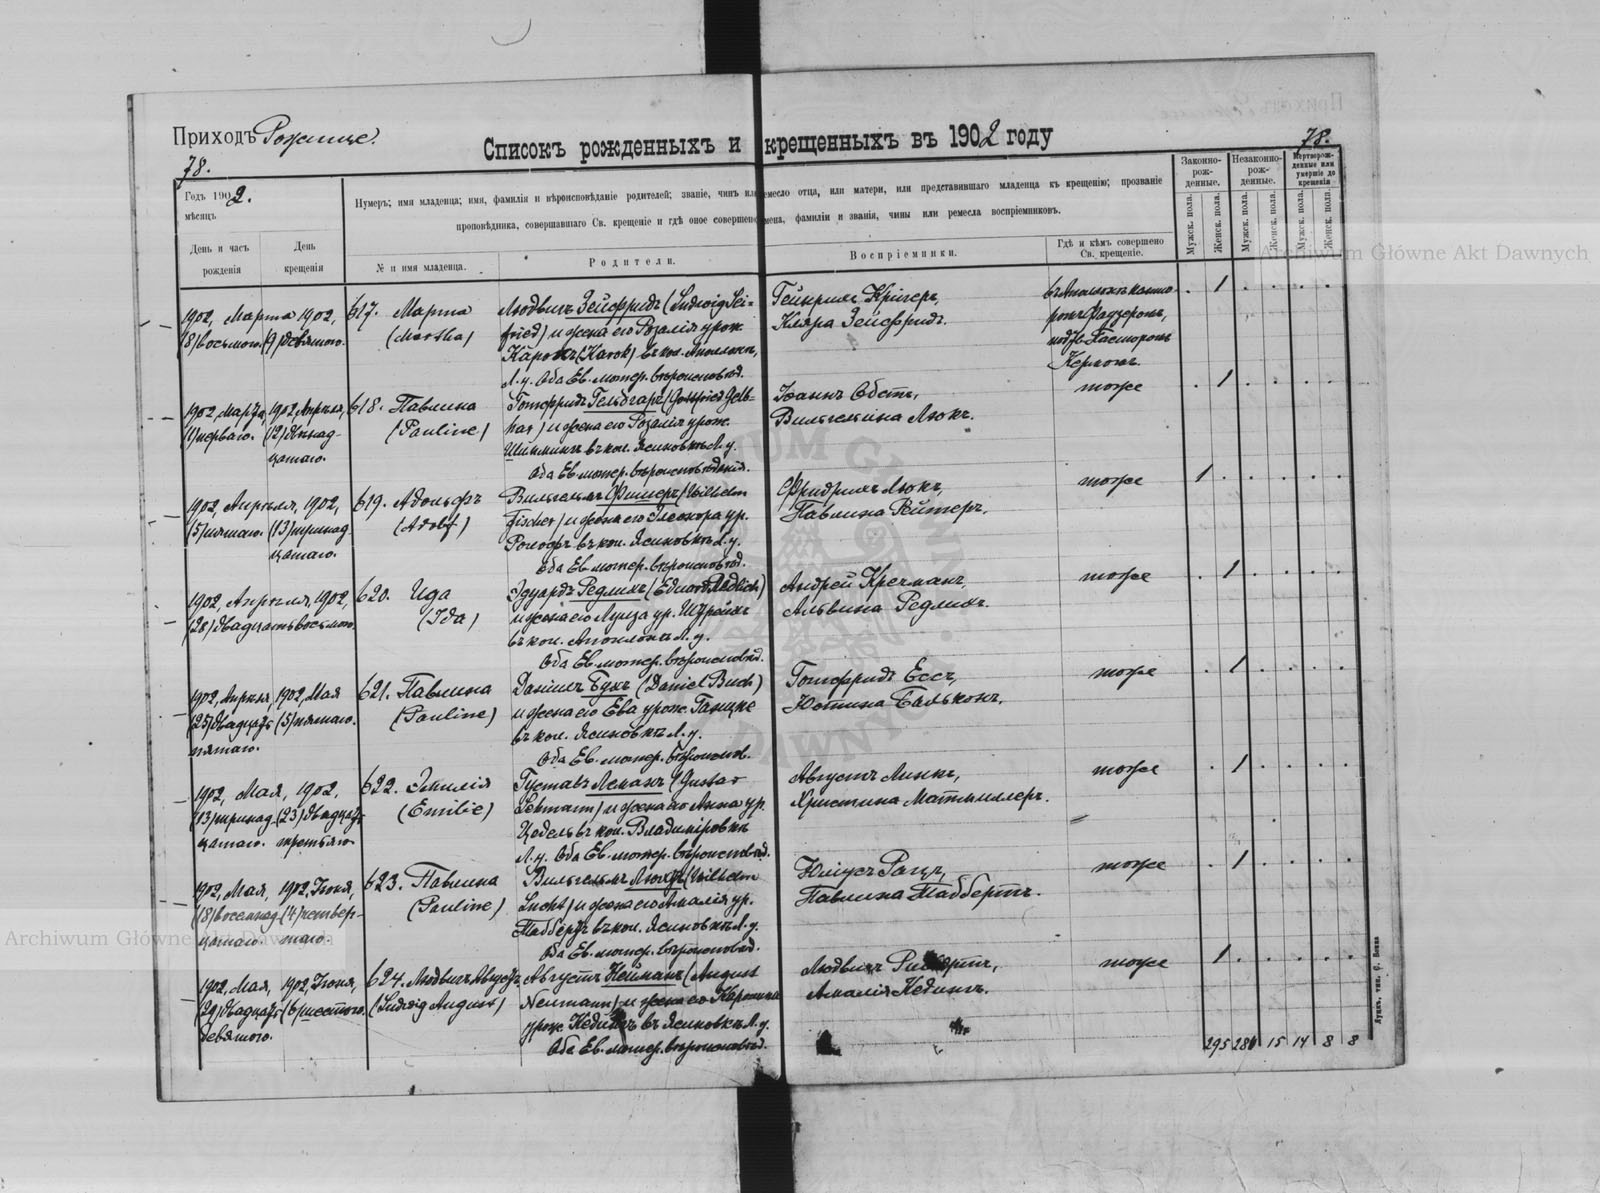 Приходъ Рожище.
Списокъ рожденныхъ и крещенныхъ въ 1902 году
78.
78.
Годъ 1902.
мѣсяцъ
День и часъ рожденія
День крещенія
Нумеръ; имя младенца; имя, фамилія и вѣроисповѣданіе родителей; званіе, чинъ или ремесло отца, или матери, или представившаго младенца къ крещенію; прозваніе
проповѣдника, совершавшаго Св. крещеніе и гдѣ оное совершено имена, фамиліи и званія, чины или ремесла воспріемниковъ.
№ и имя младенца.
Родители.
Воспріемники.
Гдѣ и кѣмъ совершено Св. крещеніе.
Законно-рож-денные.
Незаконно-рож-денные.
Мертворож-денные или умершіе до крещенія
Мужск. пола.
Женск. пола.
Мужск. пола.
Женск. пола.
Мужск. пола.
Женск. пола.
1902, Марта 1902,
(8) восьмого. (9) девятого.
617. Марта
(Martha)
Людвигъ Зейфридъ (Ludwig Sei-
fried) и жена его Розалія урож.
Карокъ (Karok) въ кол.
Л. у. Оба Ев. лютер. вѣроисповѣд.
Гейнрихъ Кригеръ,
Клара Зейфридъ.
Пасторомъ
Керномъ.
1902, Марта, 1902 Апрѣля,
(1) перваго. (12) двѣнад-
цатаго.
618. Павлина
(Pauline)
Готфридъ Гельбгаръ (Gottfried Gelb-
har) и жена его Розалія урож.
въ кол. Ясиновкѣ Л. у.
Оба Ев. лютер. вѣроисповѣданія.
Іоаннъ Обстъ,
Вильгельмина Люкъ.
тоже
1902, Апрѣля, 1902,
(5) пятаго. (13) тринад-
цатаго.
619. Адольфъ
(Adolf)
Вильгельмъ Фишеръ (Wilhelm
Fischer) и жена его Элеонора ур.
въ кол. Ясиновкѣ Л. у.
Оба Ев. лютер. вѣроисповѣд.
Фридрихъ Люкъ,
Павлина Рейтеръ.
тоже
1902, Апрѣля, 1902,
(28) двадцать восьмого.
620. Ида
(Ida)
Эдуардъ Редлихъ (Eduard Redlich)
и жена его Луиза ур.
въ кол. Л. у.
Оба Ев. лютер. вѣроисповѣд.
Андрей Кречманъ,
Альвина Редлихъ.
тоже
1902, Апрѣля, 1902, Мая
(25) двадцать (5) пятаго.
пятаго.
621. Павлина
(Pauline)
Даніилъ Бухъ (Daniel Buch)
и жена его Ева урож. Ганцке
въ кол. Ясиновкѣ Л. у.
Оба Ев. лютер. вѣроисповѣд.
Готфридъ Ессъ,
Юстина Бальконъ.
тоже
1902, Мая, 1902,
(13) тринад- (23) двадцать
цатаго. третьяго.
622. Эмилія
(Emilie)
Густавъ Леманъ (Gustav
Lehmann) и жена его Анна ур.
Цодель въ кол. Владиміровкѣ
Л. у. Оба Ев. лютер. вѣроисповѣд.
Августъ Линкъ,
Христина Матмиллеръ.
тоже
1902, Мая, 1902, Іюня,
(18) восемнад- (4) четвер-
цатаго. таго.
623. Павлина
(Pauline)
Вильгельмъ Люхтъ (Wilhelm
Lucht) и жена его Амалія ур.
Таббертъ въ кол. Ясиновкѣ Л. у.
Оба Ев. лютер. вѣроисповѣд.
Юліусъ Рацъ,
Павлина Таббертъ.
тоже
1902, Мая, 1902, Іюня,
(29) двадцать (6) шестого.
девятого.
624. Людвигъ Августъ
(Ludwig August)
Августъ Нейманъ (August
Neumann) и жена его Каролина
урож. въ Ясиновкѣ Л. у.
Оба Ев. лютер. вѣроисповѣд.
Людвигъ
Амалія Кединъ.
тоже
295 286 15 14 8 8
Archiwum Główne Akt Dawnych
Archiwum Główne Akt Dawnych